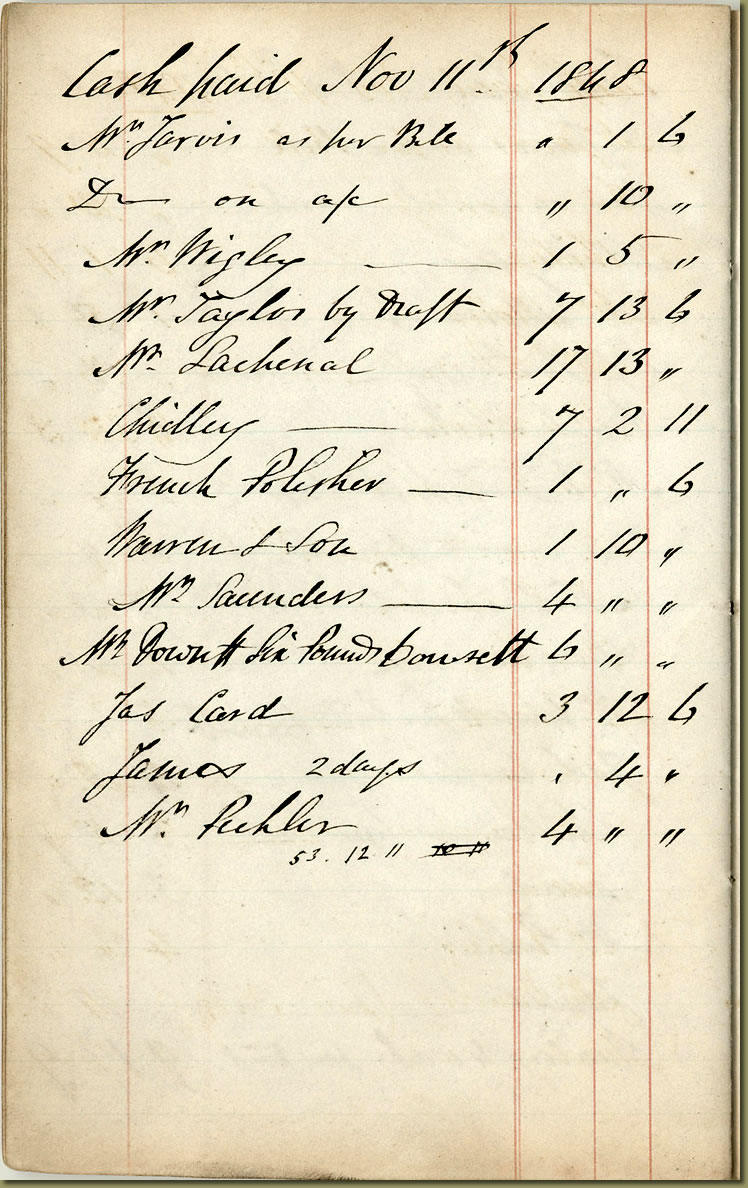 Cash paid Nov 11th 1848
Mr Jarvis as per Bill " 1 6
Do on a/c " 10 "
Mr. Wigley — 1 5 "
Mr. Taylor by Draft 7 13 6
Mr. Lachenal 17 13 "
Chidley — 7 2 11
French Polisher — 1 " 6
Warren & Son 1 10 "
Mr Saunders — 4 " "
Mr Six Pounds Dowsett 6 " "
Jas Card 3 12 6
James 2 days " 4 "
Mr. Pichler 4 " "
53. 12 11